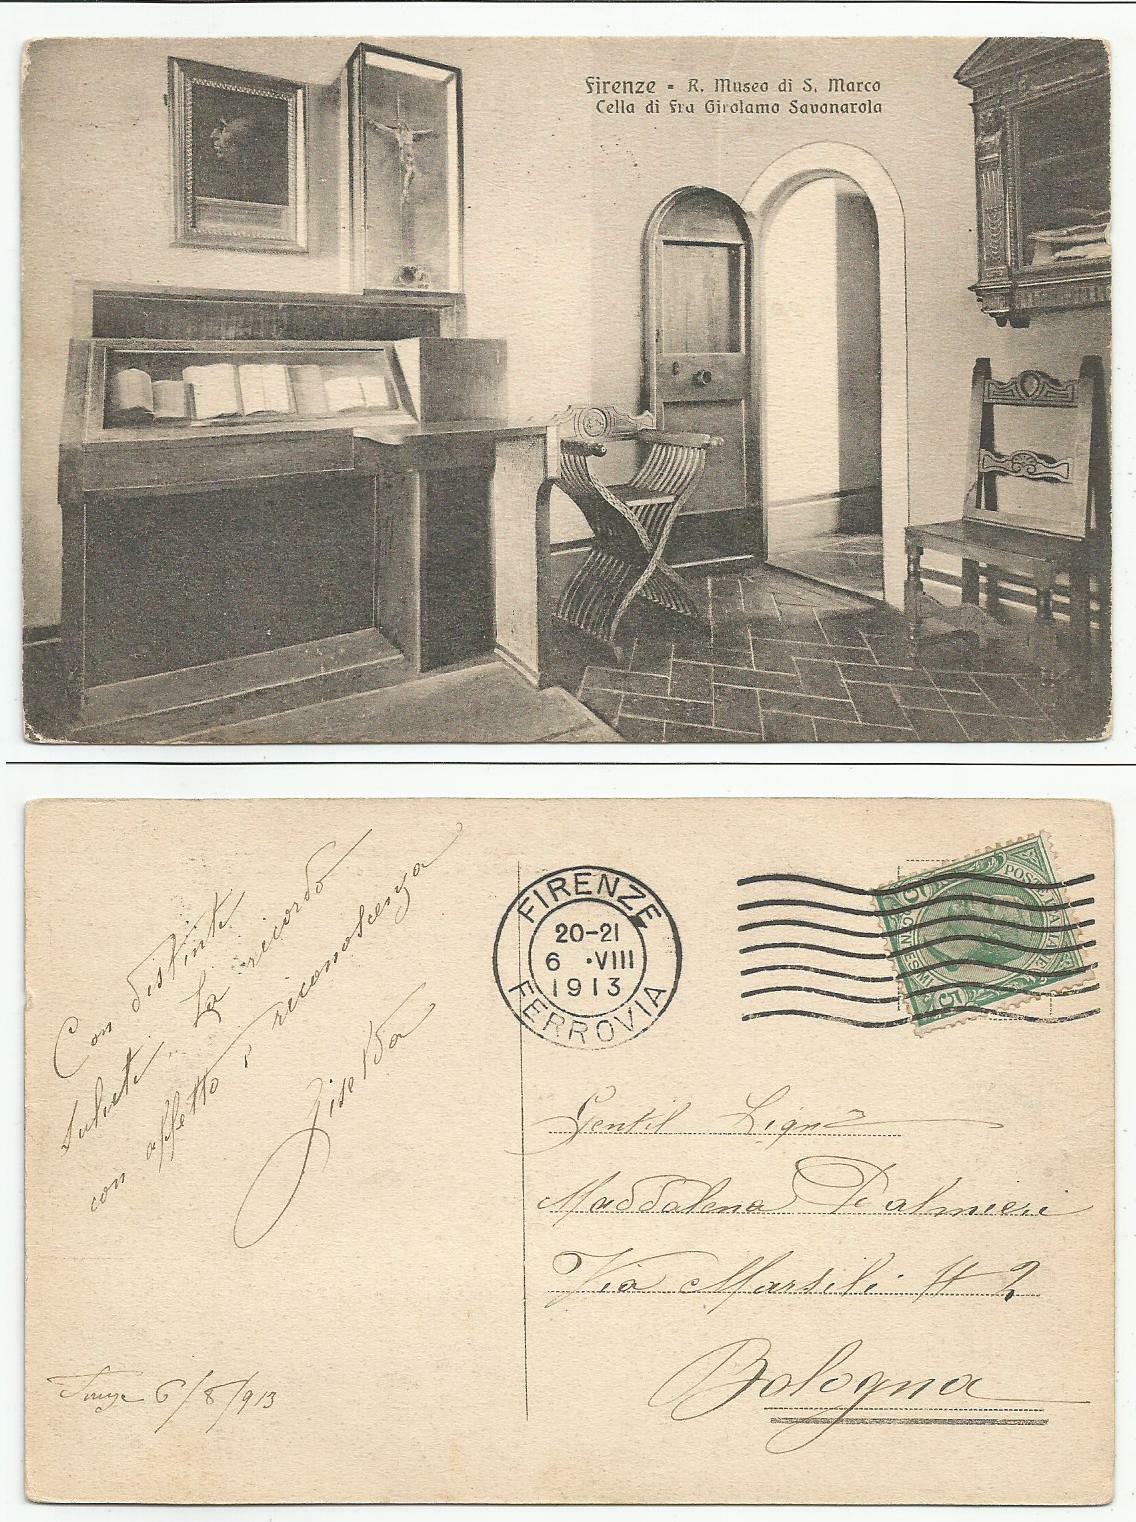 Firenze - R. Museo di S. Marco
Cella di Fra Girolamo Savonarola
Con distinti
saluti La ricordo
con affetto e riconoscenza
Giselda
Firenze 6/8/913
FIRENZE
20-21
6 · VIII
1913
FERROVIA
POSTE ITALIANE
CENTESIMI
5
5
Gentil Sigra
Maddalena Palmieri
Via Marsili N 2
Bologna